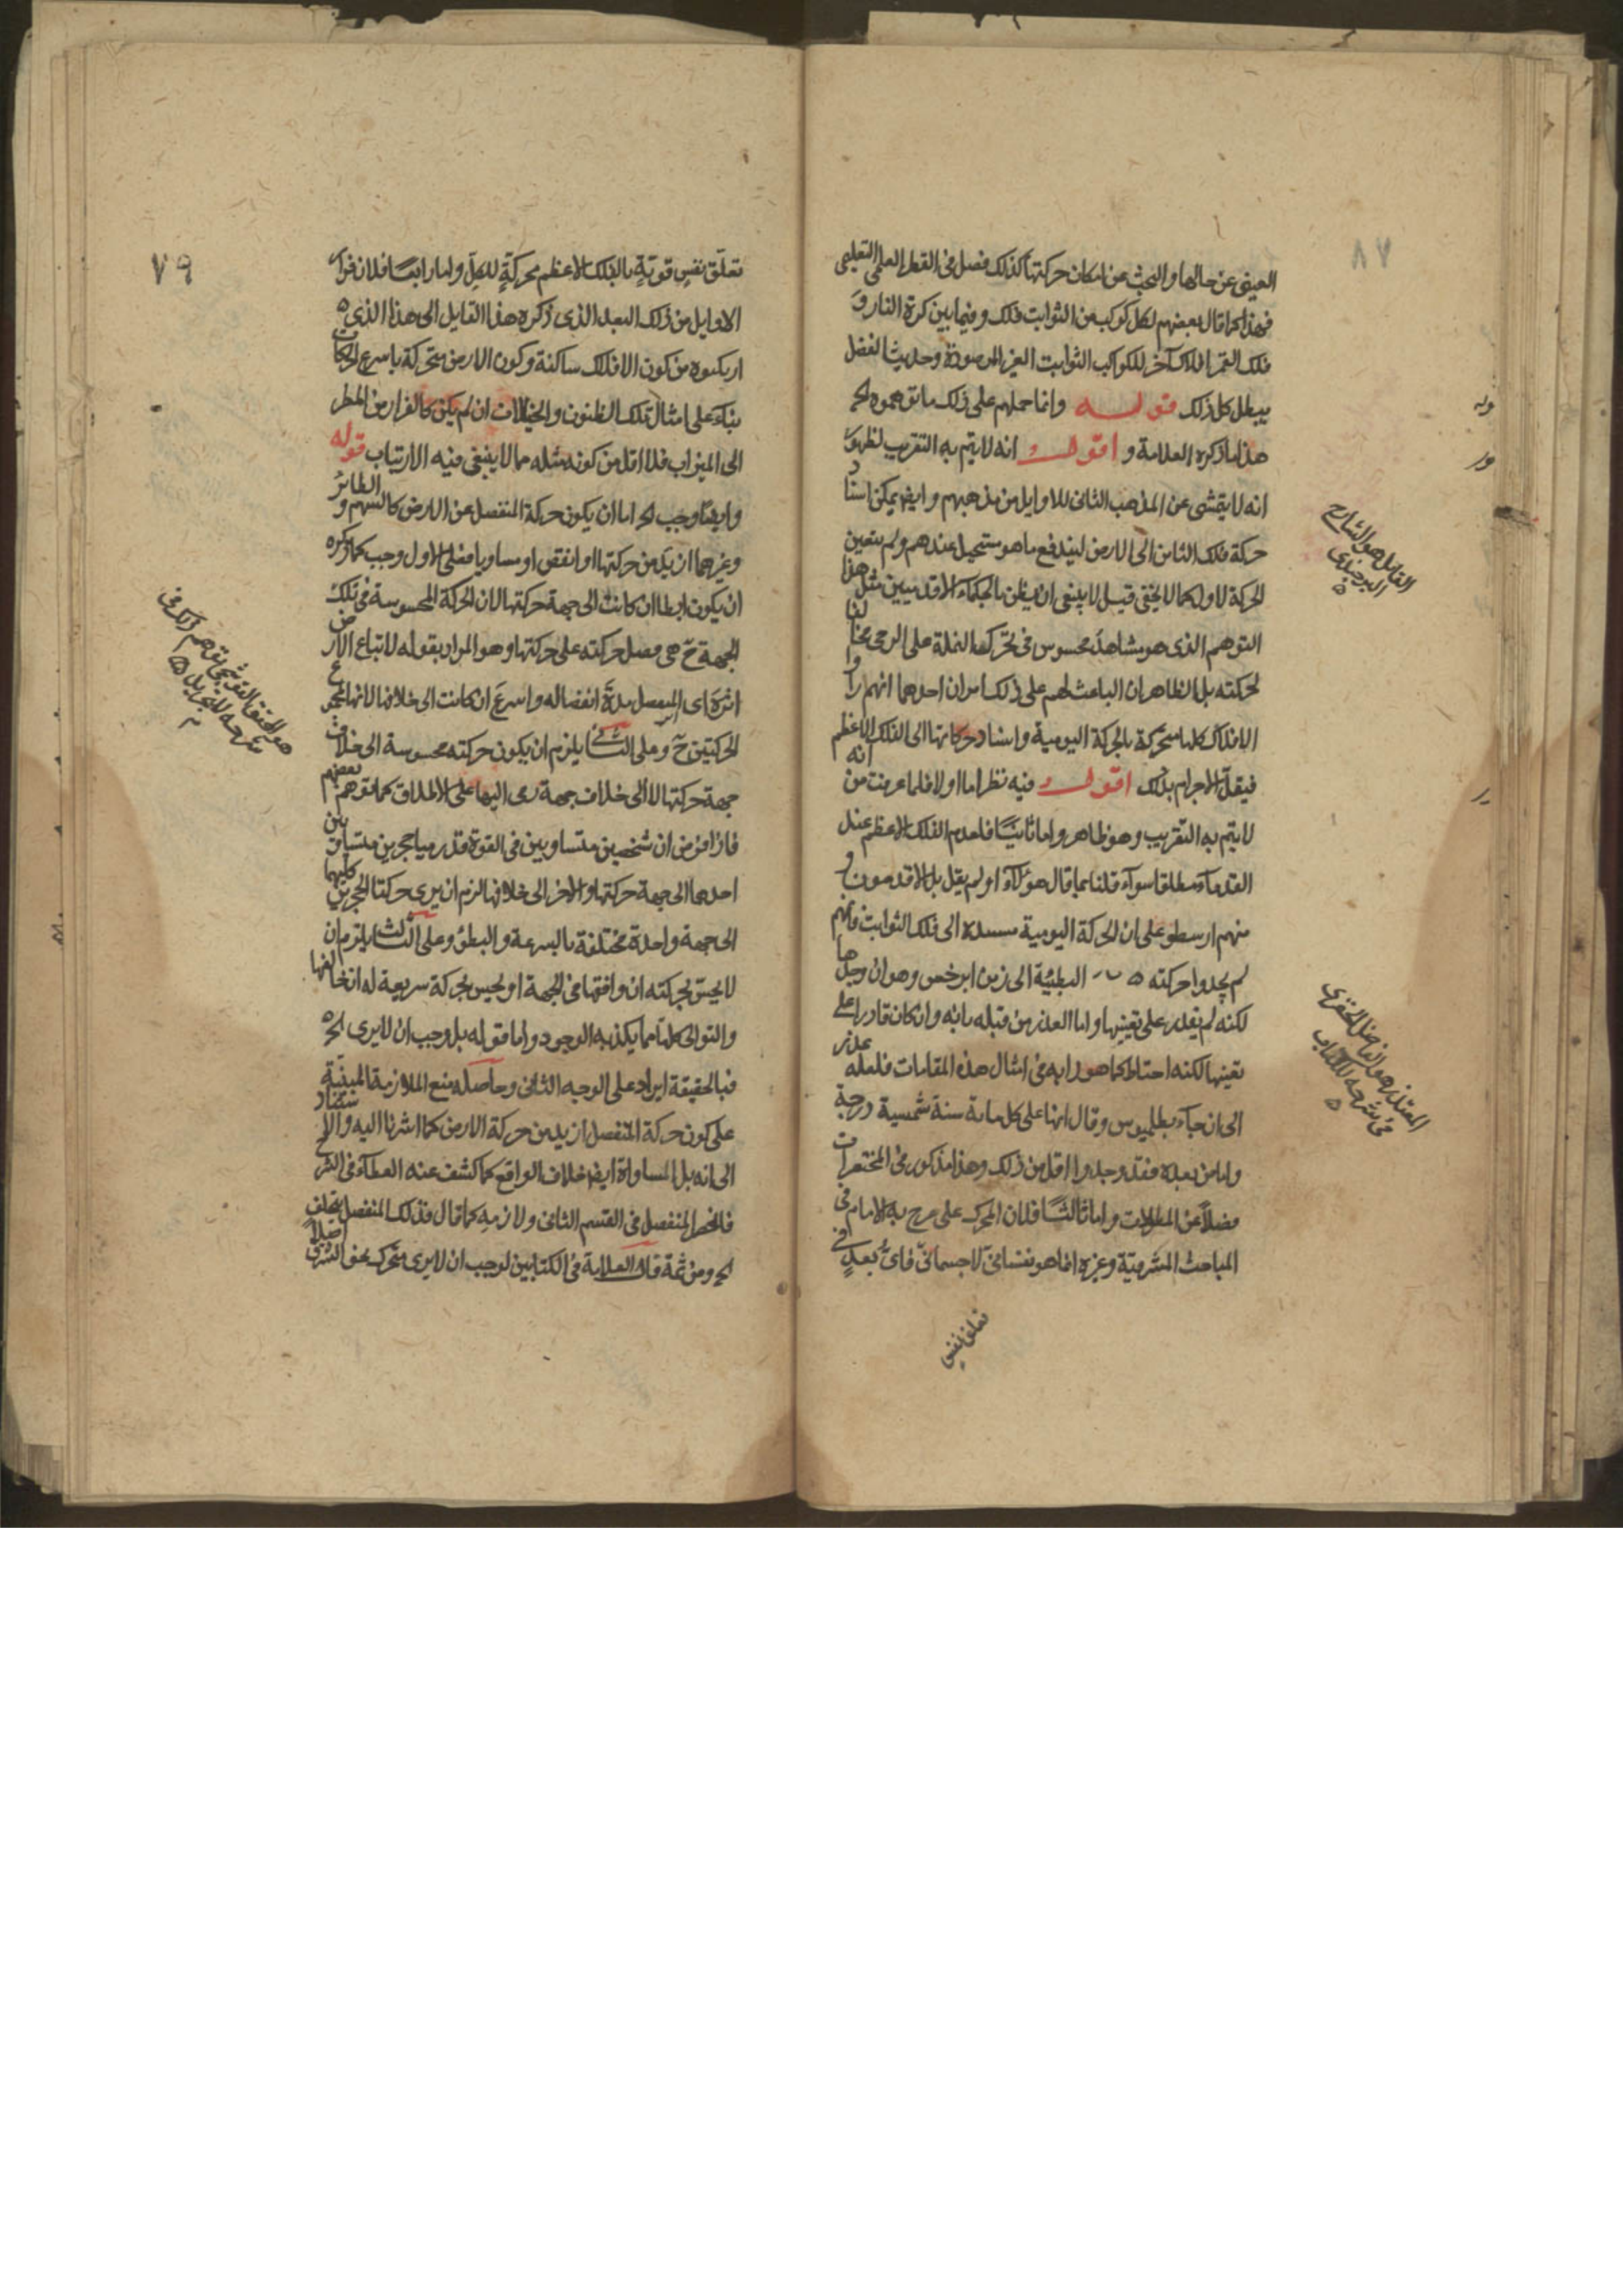 ٨٧
الغنى عن حالها والبحث عن امكان حركتها كذلك فصل فى القطر العلمى التعليمى
فهذا كما قال بعضهم لكل كوكب من الثوابت فلك وفيما بين كرة النار و
فلك القمر افلاك آخر للكواكب الثوابت الغير المرصودة وحديث الفضل
يبطل كل ذلك قوله وانما حملهم على ذلك ما توهموه الخ
هذا ما ذكره العلامة و اقول انه لا يتم به التقريب لظهور
انه لا يتمشى عن المذهب الثانى للاوايل من مذهبهم وايضا يمكن اسناد
حركة فلك الثامن الى الارض ليندفع ما هو مستحيل عندهم ولم يتعين
الحركة الاولى كما لا يخفى قيل لا ينبغى ان يظن بالحكماء الاقدميين مثل هذا
التوهم الذى هو مشاهد محسوس فى تحرك النملة على الرحى مخالفا
لحركته بل الظاهر ان الباعث لهم على ذلك امران احدهما انهم راوا
الافلاك كلها متحركة بالحركة اليومية واسناد حركاتها الى الفلك الاعظم
فيقل الاجرام بذلك اقول فيه نظر اما اولا فلما عرفت من انه
لا يتم به التقريب وهو ظاهر واما ثانيا فلعدم الفلك الاعظم عند
القدماء مطلقا سواء قلنا بما قال هؤلاء او لم يقل بل الاقدمون و
منهم ارسطو على ان الحركة اليومية مسندة الى فلك الثوابت فانهم
لم يجدوا حركته البطيئة الى زمن ابرخس وهو ان وجدها
لكنه لم يقدر على تعيينها واما العذر من قبله بانه وان كان قادرا على
تعيينها لكنه احتاط كما هو دابه فى امثال هذه المقامات فلعله عذر
الى ان جاء بطلميوس وقال انها على كل ماية سنة شمسية درجة
واما من بعده فقد وجدوا اقل من ذلك وهذا مذكور فى المختصرات
فضلا عن المطولات واما ثالثا فلان المحرك على ما صرح به الامام فى
المباحث المشرقية وغيره انما هو نفسانى لا جسمانى فاى بعد فى
تعلق نفس
القايل هو الشارح
البرجندى
المعتذر هو الفاضل الخفرى
فى شرحه للكتاب
٧٩
تعلق نفس قوية بالفلك الاعظم محركة للكل واما رابعا فلان فرار
الاوايل من ذلك البعد الذى ذكره هذا القايل الى هذا الذى
ارتكبوه من كون الافلاك ساكنة وكون الارض متحركة باسرع الحركات
بناء على امثال تلك الظنون والخيالات ان لم يكن كالفرار من المطر
الى الميزاب فلا اقل من كونه مثله مما لا ينبغى فيه الارتياب قوله
وايضا وجب الخ اما ان يكون حركة المنفصل عن الارض كالسهم و الطائر
وغيرهما ازيد من حركتها او انقص او مساويا فعلى الاول وجب كما ذكره
ان يكون ابطا ان كانت الى جهة حركتها لان الحركة المحسوسة فى تلك
الجهة ح هى فضل حركته على حركتها وهو المراد بقوله لاتباع الارض
اثره اى المنفصل مدة انفصاله واسرع ان كانت الى خلافها لانها مجموع
الحركتين ح وعلى الثانى يلزم ان يكون حركته محسوسة الى خلاف
جهة حركتها لا الى خلاف جهة رمى اليها على الاطلاق كما توهم بعضهم
فاذا فرض ان شخصين متساويين فى القوة قد رميا حجرين متساويين
احدهما الى جهة حركتها والاخر الى خلافها لزم ان يرى حركتا الحجرين كليهما
الى جهة واحدة مختلفة بالسرعة والبطؤ وعلى الثالث يلزم ان
لا يحس بحركته ان وافقها فى الجهة او يحس بحركة سريعة له ان خالفها
والتوالى كلها مما يكذبه الوجود واما قوله بل وجب ان لا يرى الخ
فبالحقيقة ايراد على الوجه الثانى وحاصله منع الملازمة المبنية
على كون حركة المنفصل ازيد من حركة الارض كما اشرنا اليه والاستناد
الى انه بل المساواة ايضا خلاف الواقع كما كشف عنه الغطاء فى الشرح
فانحصر المنفصل فى القسم الثانى ولازمه كما قال فذلك المنفصل يتخلف
الخ ومن ثمة قال العلامة فى الكتابين لوجب ان لا يرى متحرك نحو الشرق اصلا
هو المحقق القوشجى توهم ذلك فى
شرحه للتجريد